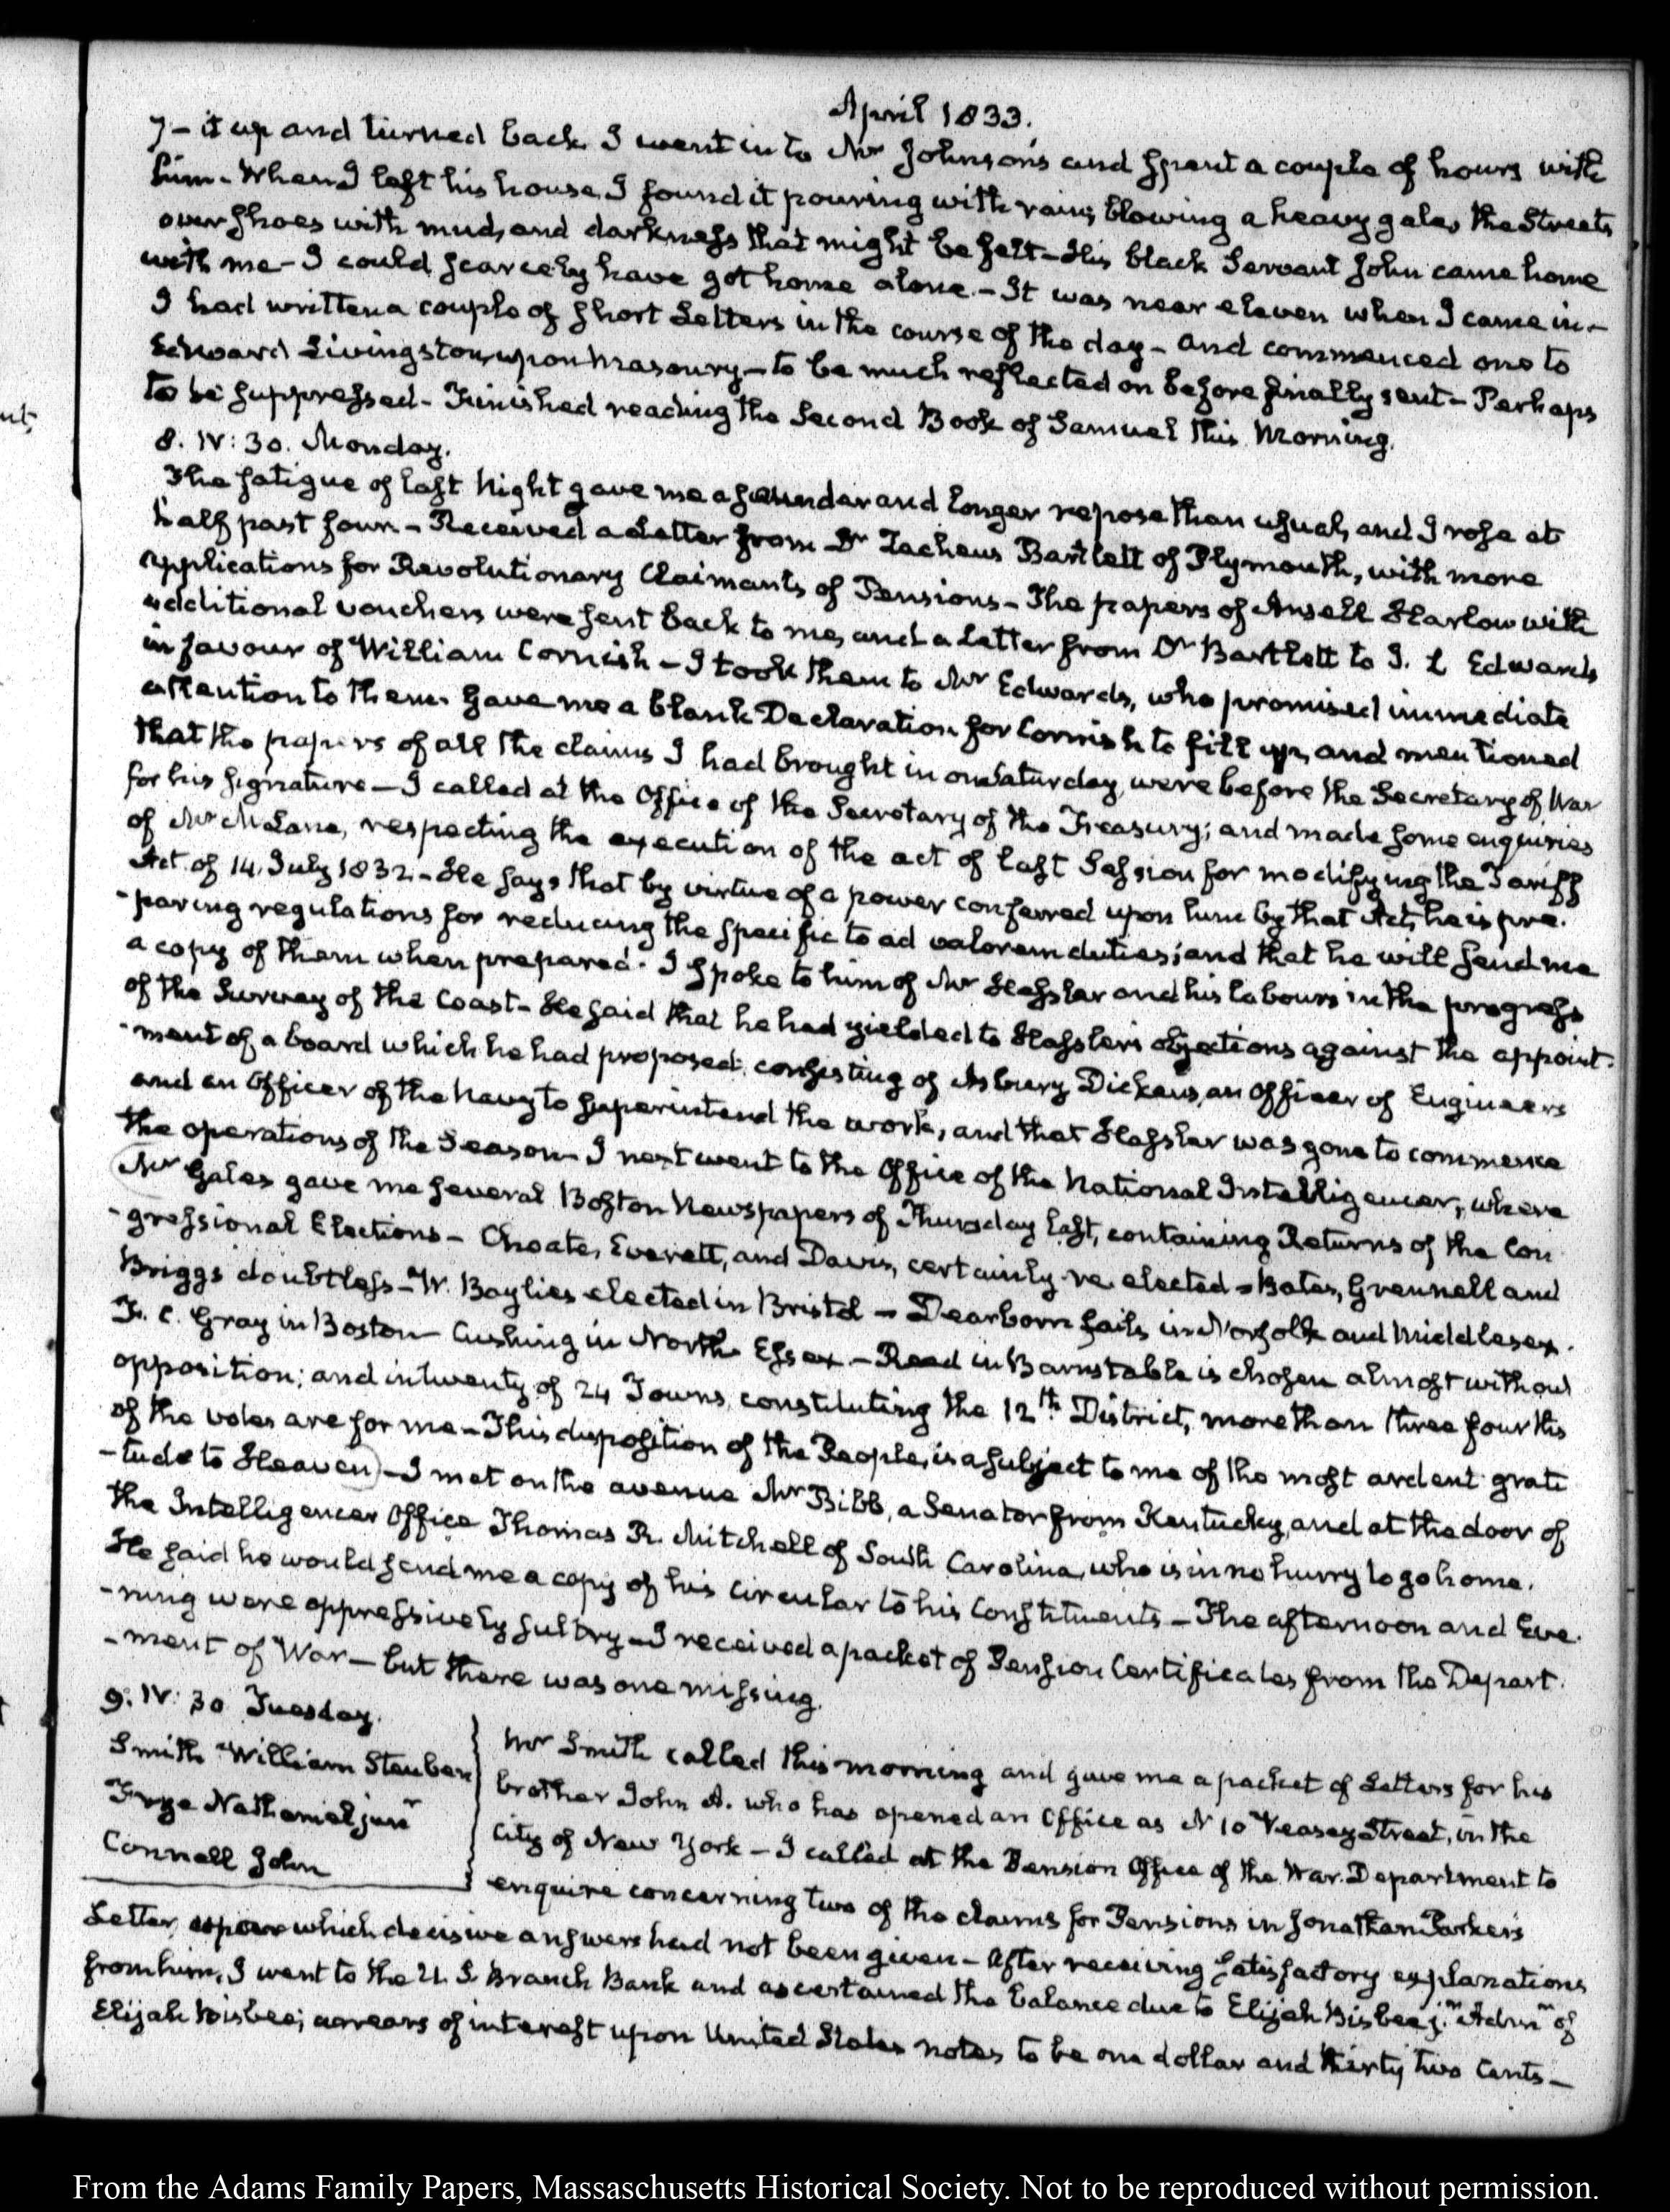 April 1833.
7 – it up and turned back. I went in to Mr Johnson's and spent a couple of hours with
him – When I left his house, I found it pouring with rain, blowing a heavy gale, the Streets
over shoes with mud, and darkness that might be felt – His black Servant John came home
with me – I could scarcely have got home alone. – It was near eleven when I came in –
I had written a couple of short Letters in the course of the day – and commenced one to
Edward Livingston, upon Masonry – to be much reflected on before finally sent – Perhaps
to be suppressed – Finished reading the Second Book of Samuel this Morning.
8. IV: 30. Monday.
The fatigue of last Night gave me a sounder and longer repose than usual, and I rose at
half past four – Received a Letter from Dr Zacheus Bartlett of Plymouth, with more
applications for Revolutionary Claimants of Pensions – The papers of Ansell Harlow with
additional vouchers were sent back to me, and a Letter from Dr Bartlett to J. L Edwards
in favour of William Cornish – I took them to Mr Edwards, who promised immediate
attention to them. Gave me a blank Declaration for Cornish to fill up, and mentioned
that the papers of all the claims I had brought in on Saturday, were before the Secretary of War
for his signature – I called at the Office of the Secretary of the Treasury; and made some enquiries
of Mr McLane, respecting the execution of the act of last Session for modifying the Tariff
Act of 14. July 1832 – He says that by virtue of a power conferred upon him by that Act, he is pre-
-paring regulations for reducing the specific to ad valorem duties; and that he will send me
a copy of them when prepared. I spoke to him of Mr Hassler and his labours in the progress
of the Survey of the Coast – He said that he had yielded to Hassler's objections against the appoint-
-ment of a board which he had proposed, consisting of Asbury Dickens, an officer of Engineers
and an Officer of the Navy to superintend the work, and that Hassler was gone to commence
the operations of the Season – I next went to the Office of the National Intelligencer, where
Mr Gales gave me several Boston Newspapers of Thursday last, containing Returns of the Con-
-gressional Elections – Choate, Everett, and Davis, certainly re elected – Bates, Grennell and
Briggs doubtless – W. Baylies elected in Bristol – Dearborn fails in Norfolk and Middlesex.
F. C. Gray in Boston – Cushing in North Essex – Reed in Barnstable is chosen almost without
opposition; and in twenty of 24 Towns, constituting the 12th District, more than three fourths
of the votes are for me – This disposition of the People, is a subject to me of the most ardent grati
-tude to Heaven) – I met on the avenue Mr Bibb, a Senator from Kentucky, and at the door of
the Intelligencer Office Thomas R. Mitchell of South Carolina, who is in no hurry to go home.
He said he would send me a copy of his circular to his Constituents – The afternoon and Eve-
-ning were oppressively sultry – I received a packet of Pension Certificates from the Depart-
-ment of War – but there was one missing.
9. IV: 30 Tuesday.
Smith William Steuben
Frye Nathaniel junr
Connell John
Mr Smith called this morning and gave me a packet of Letters for his
brother John A. who has opened an Office as N 10 Veasey Street, in the
City of New York – I called at the Pension Office of the War Department to
enquire concerning two of the claims for Pensions in Jonathan Parker's
Letter, upon which decisive answers had not been given – After receiving satisfactory explanations
from him, I went to the U. S. Branch Bank and ascertained the balance due to Elijah Bisbee jr. Admr of
Elijah Bisbee; arrears of interest upon United States notes to be one dollar and thirty two Cents –
From the Adams Family Papers, Massachusetts Historical Society. Not to be reproduced without permission.